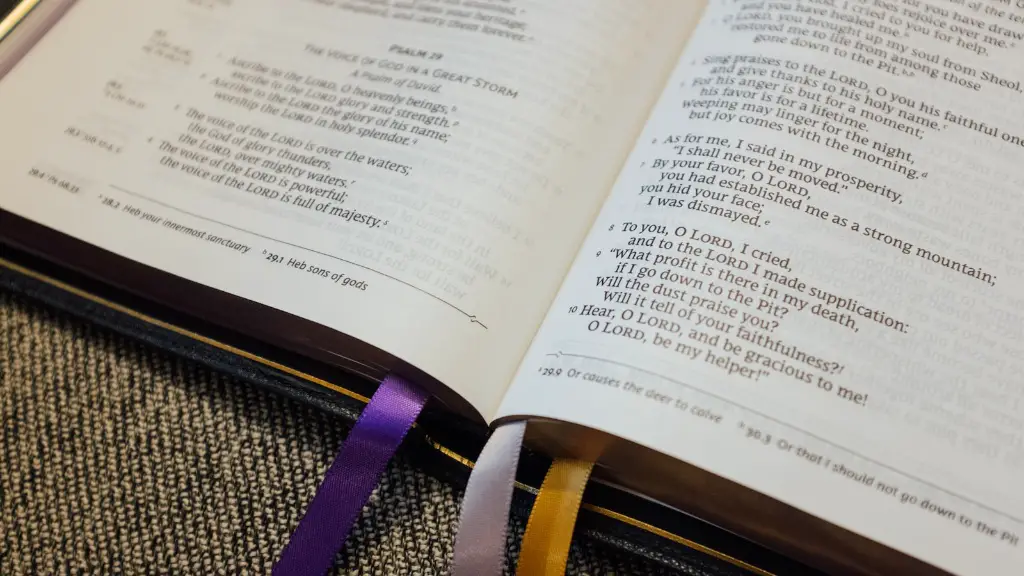 carry them forever.
PSALM 29
THE VOICE OF GOD IN A GREAT STORM
A Psalm of David.
1 Ascribe to the LORD, O heavenly beings, b
ascribe to the LORD glory and strength.
2 Ascribe to the LORD the glory of his name;
worship the LORD in holy splendor.
3 The voice of the LORD is over the waters;
the God of glory thunders,
the LORD, over mighty waters.
4 The voice of the LORD is powerful;
the voice of the LORD is full of majesty.
a 28.2 Heb your innermost sanctuary b 29.1 Heb sons of gods
you have healed me.
O LORD, you brought up my soul from Sheol,
restored me to life from among those
gone down to the Pit.
Sing praises to the LORD, O you his faithful
and give thanks to his holy name.
For his anger is but for a moment;
his favor is for a lifetime.
weeping may linger for the night,
but joy comes with the morning.
6 As for me, I said in my prosperity,
"I shall never be moved."
7 By your favor, O LORD,
you had established me as a strong mountain;
you hid your face;
I was dismayed.
8 To you, O LORD, I cried,
and to the LORD I made supplication:
9 "What profit is there in my death,
if I go down to the Pit?
Will the dust praise you?
Will it tell of your faithfulness?
10 Hear, O LORD, and be gracious to me!
O LORD, be my helper!"
a 29.9 Or causes the deer to calve b 30.3 Or that I should not go down to the Pit